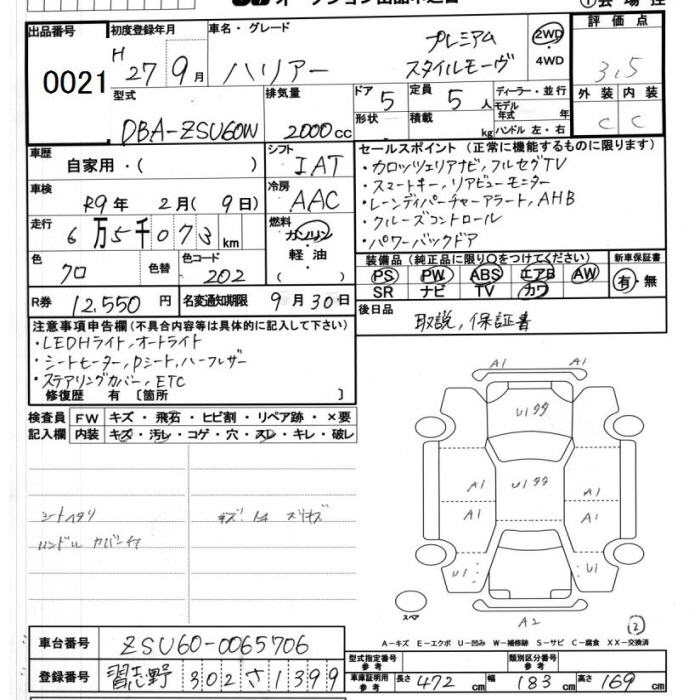 オークション出品申込書
出品番号
0021
初度登録年月
H 27 9月
車名・グレード
ハリアー
プレミアム
スタイルモーヴ
2WD
・
4WD
評価点
3.5
外装 内装
C C
型式
DBA-ZSU60W
排気量
2000cc
ドア
5
形状
定員
5人
積載
kg
ディーラー・並行
モデル
年式 年
ハンドル 左・右
車歴
自家用・( )
シフト
IAT
車検
R9年 2月( 9日)
冷房
AAC
走行
6万5千073km
燃料
ガソリン
・
軽油・
( )
色
クロ
色替
色コード
202
R券 12,550円
名変通知期限 9月30日
セールスポイント(正常に機能するものに限ります)
・カロッツェリアナビ,フルセグTV
・スマートキー,リアビューモニター
・レーンディパーチャーアラート,AHB
・クルーズコントロール
・パワーバックドア
装備品(純正品に限り○をつけてください)
新車保証書
PS PW ABS エアB AW
SR ナビ TV カワ
有・無
後日品
取説,保証書
注意事項申告欄(不具合内容等は具体的に記入して下さい)
・LEDHライト,オートライト
・シートヒーター,Pシート,ハーフレザー
・ステアリングカバー,ETC
修復歴 有〔箇所 〕
検査員
記入欄
FW キズ・飛石・ヒビ割・リペア跡・×要
内装 キズ・汚レ・コゲ・穴・スレ・キレ・破レ
シートヘタリ
ハンドル カバー付
スリキズ
A1 A1
U1
U1
A1
A1
A1
A1
U1
U1
スペア
A2
②
A-キズ E-エクボ U-凹み W-補修跡 S-サビ C-腐食 XX-交換済
車台番号 ZSU60-0065706
登録番号 習志野 302 さ 1399
型式指定番号
参考
類別区分番号
参考
車庫証明用
参考
長さ 472cm 幅 183cm 高さ 169cm